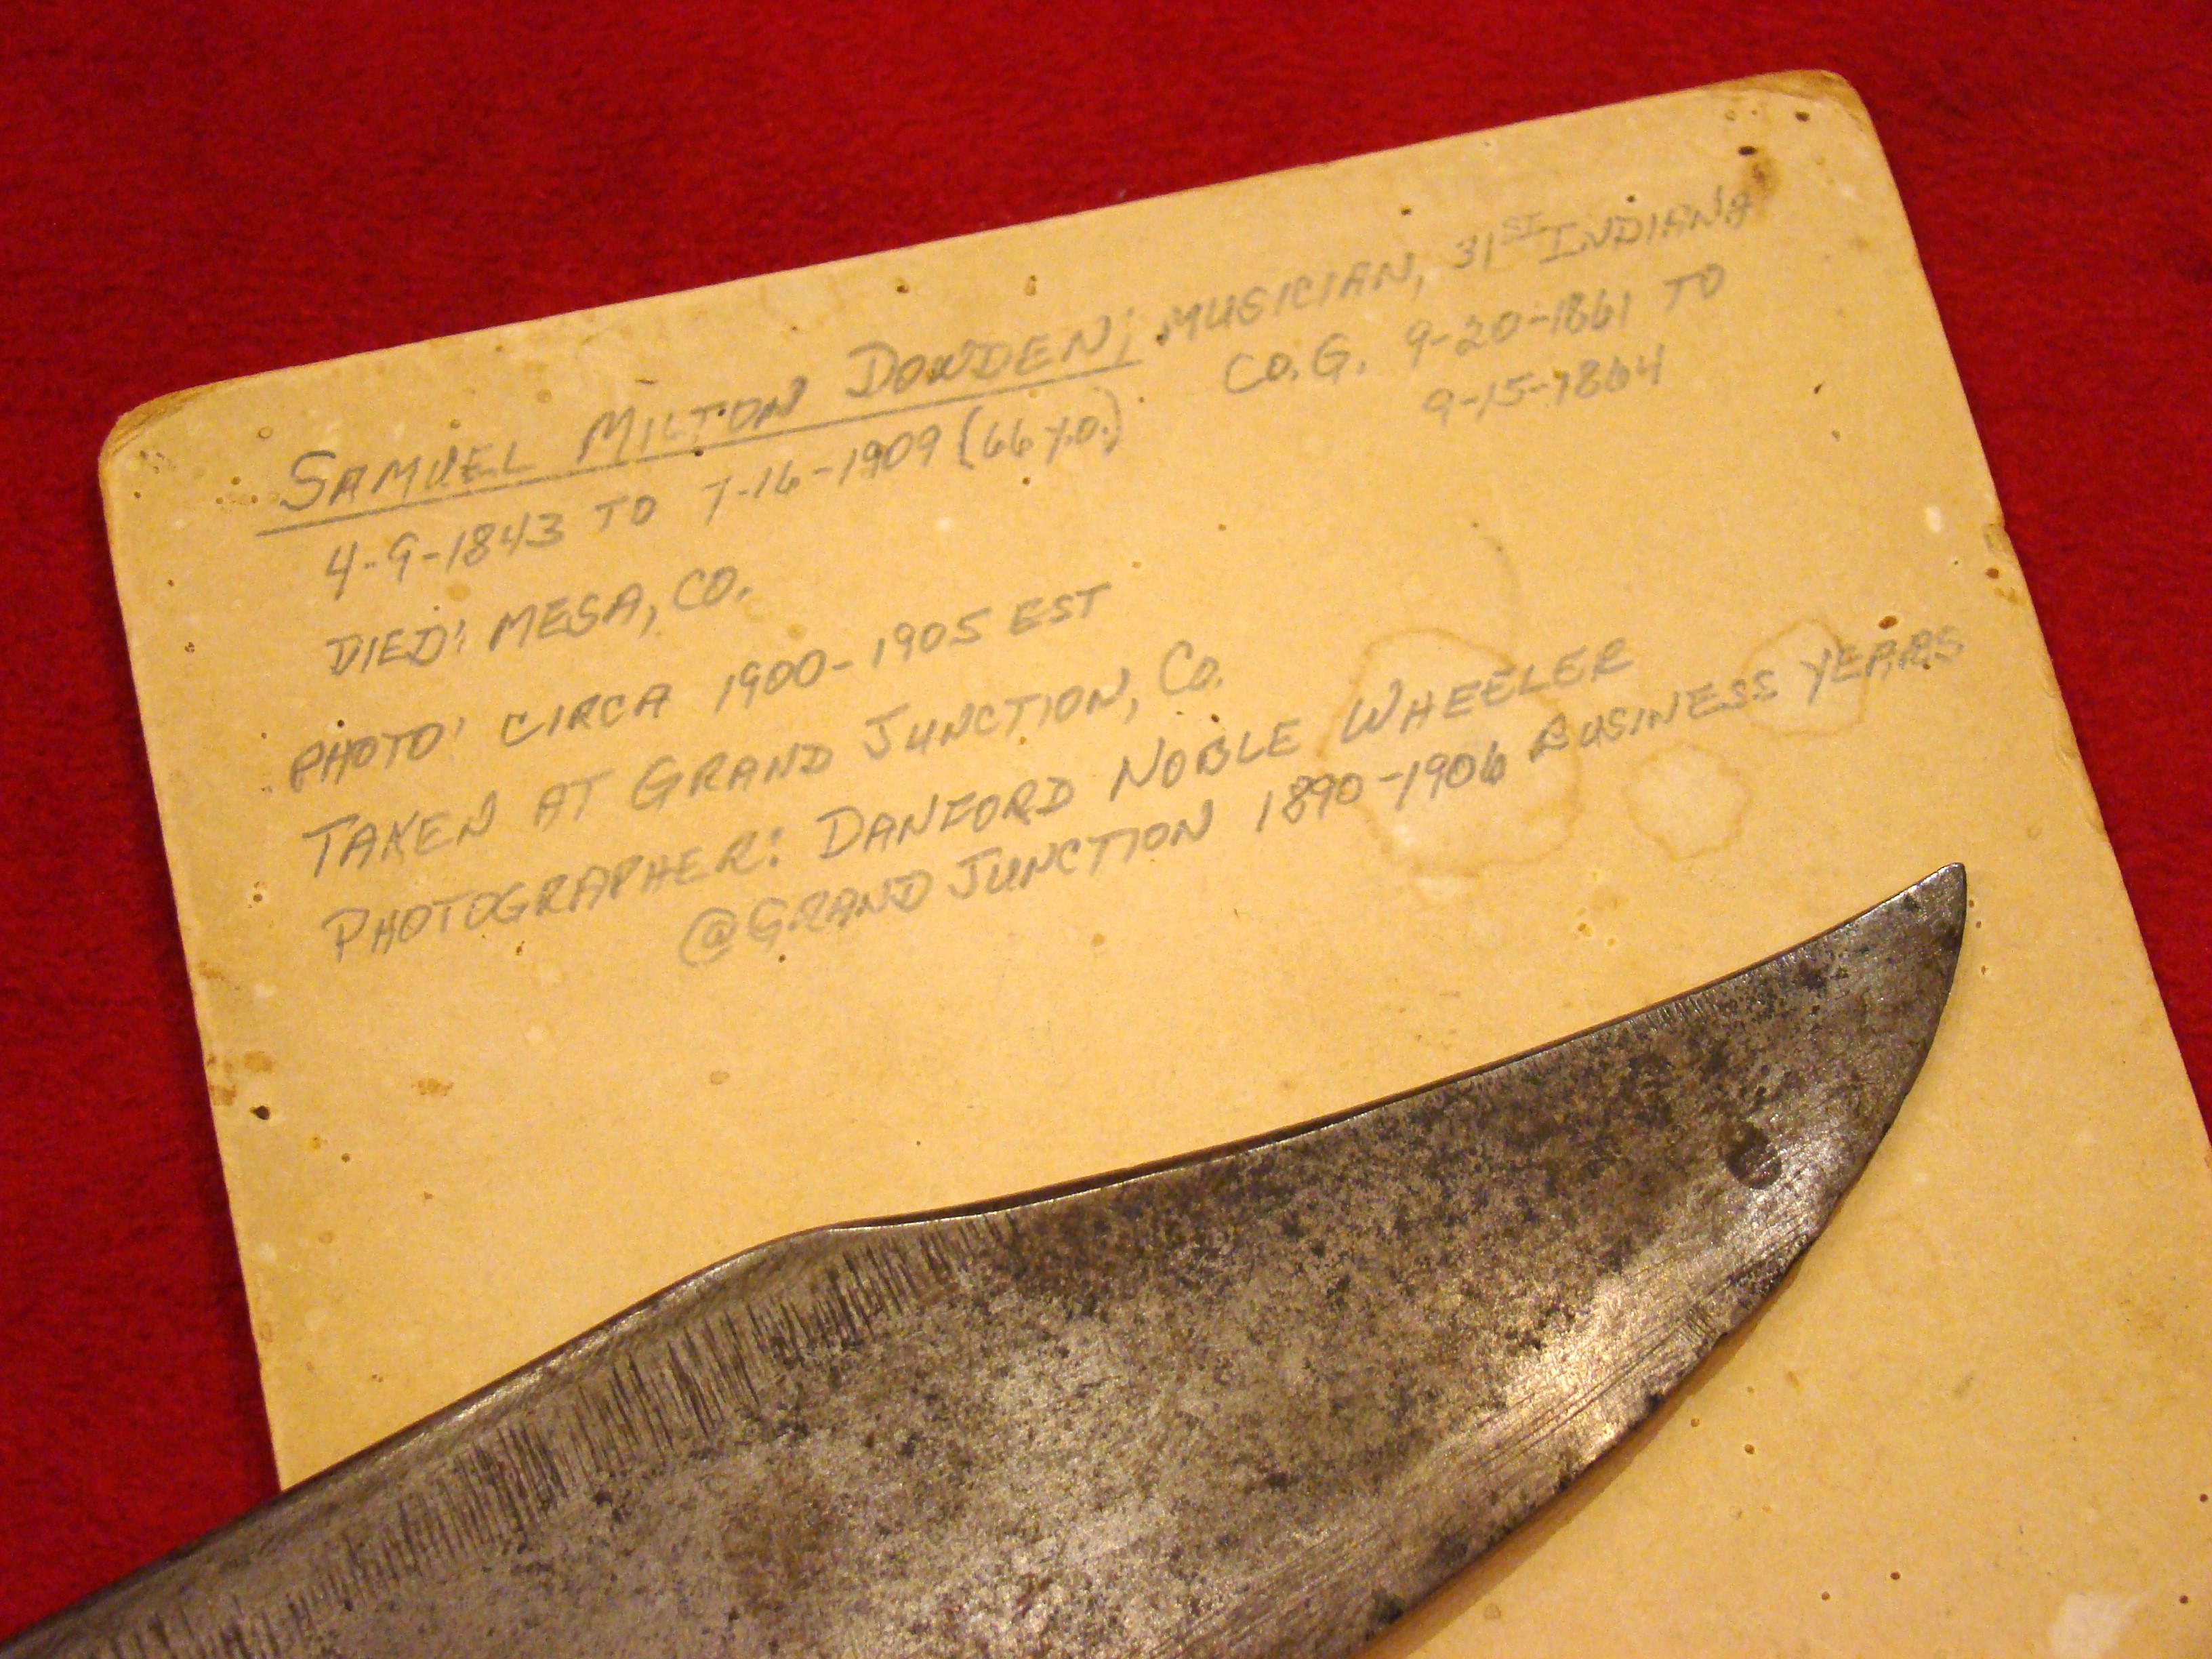 SAMUEL MILTON DOWDEN; MUSICIAN, 31ST INDIANA
4-9-1843 TO 7-16-1909 (66 Y.O.) CO. G. 9-20-1861 TO
9-15-1864
DIED: MESA, CO.
PHOTO: CIRCA 1900-1905 EST
TAKEN AT GRAND JUNCTION, CO.
PHOTOGRAPHER: DANFORD NOBLE WHEELER
@ GRAND JUNCTION 1890-1906 BUSINESS YEARS